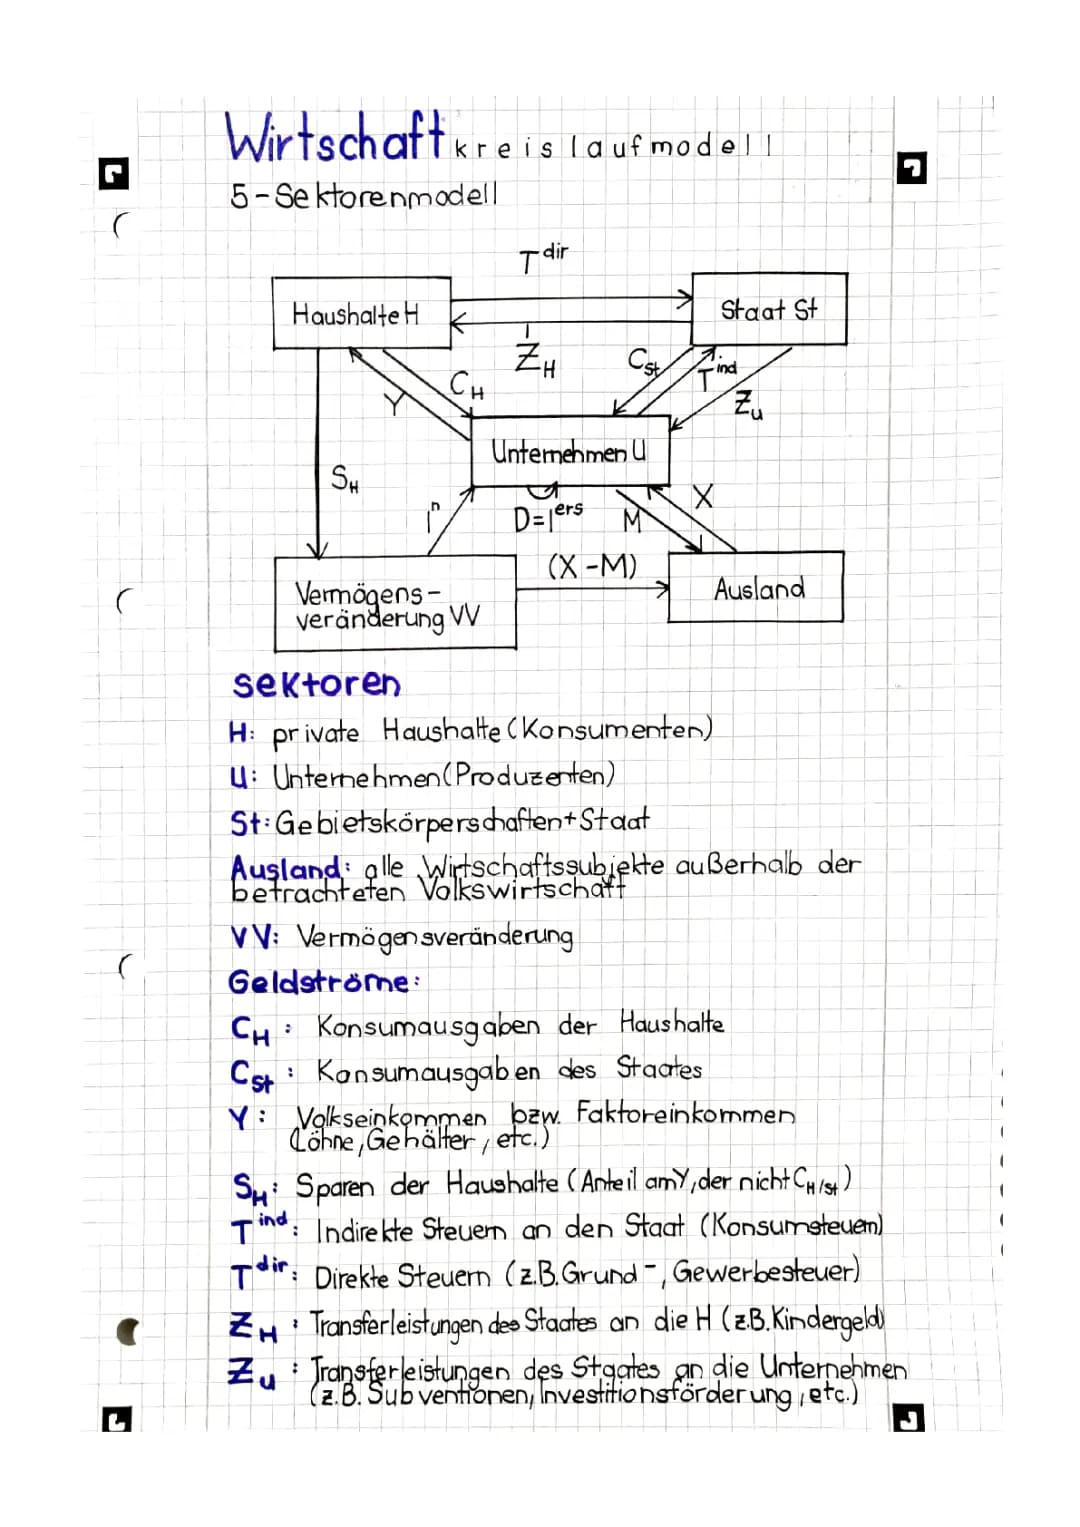 Wirtschaftkreislaufmodell
5-Sektorenmodell
T dir
Haushalte H
Staat St
Z H
C St
T ind
Z u
C H
Y
Unternehmen U
S H
I n
D=I ers
M
X
(X-M)
Vermögens-
veränderung VV
Ausland
Sektoren
H: private Haushalte (Konsumenten)
U: Unternehmen (Produzenten)
St: Gebietskörperschaften+Staat
Ausland: alle Wirtschaftssubjekte außerhalb der
betrachteten Volkswirtschaft
VV: Vermögensveränderung
Geldströme:
C H : Konsumausgaben der Haushalte
C St : Konsumausgaben des Staates
Y : Volkseinkommen bzw. Faktoreinkommen
(Löhne, Gehälter, etc.)
S H : Sparen der Haushalte (Anteil am Y, der nicht C H/St)
T ind : Indirekte Steuern an den Staat (Konsumsteuern)
T dir : Direkte Steuern (z.B. Grund-, Gewerbesteuer)
Z H : Transferleistungen des Staates an die H (z.B. Kindergeld)
Z u : Transferleistungen des Staates an die Unternehmen
(z.B. Subventionen, Investitionsförderung, etc.)